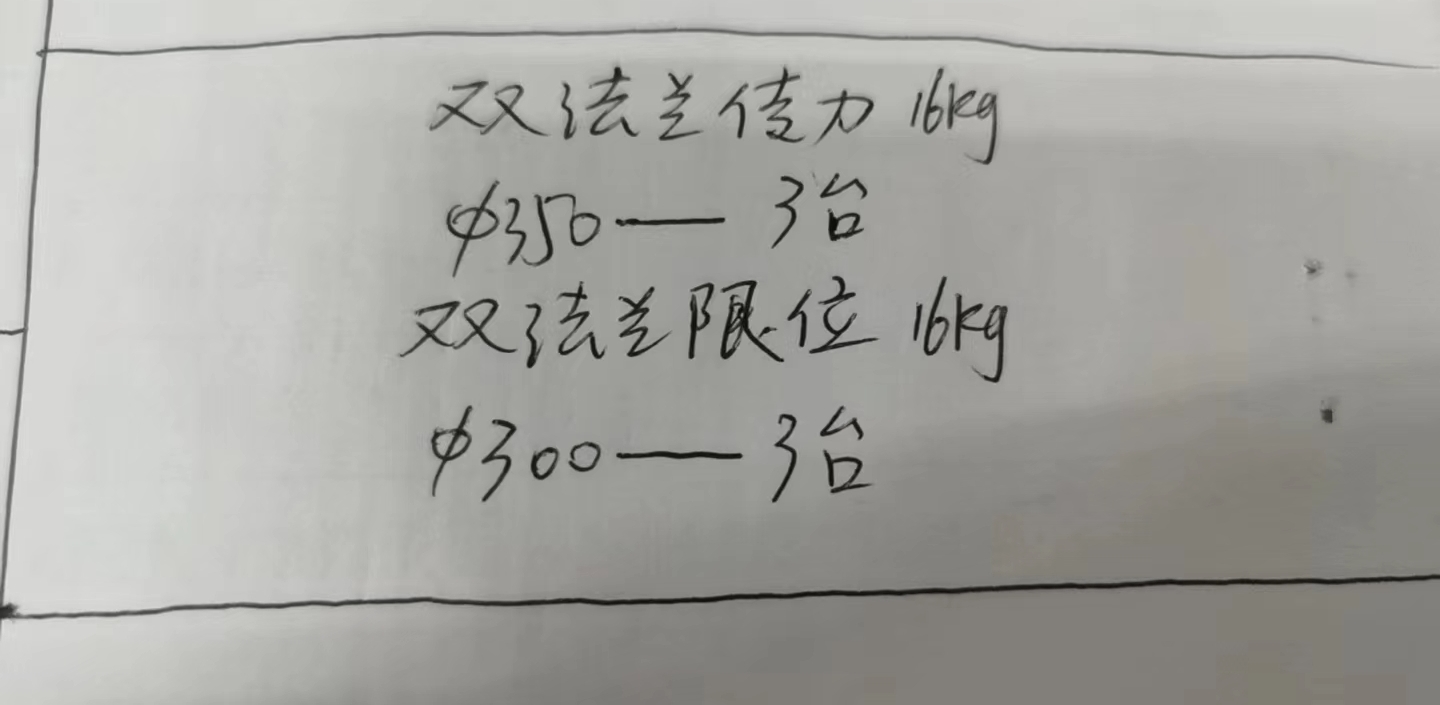 双法兰传力 16kg
φ350—3台
双法兰限位 16kg
φ300—3台